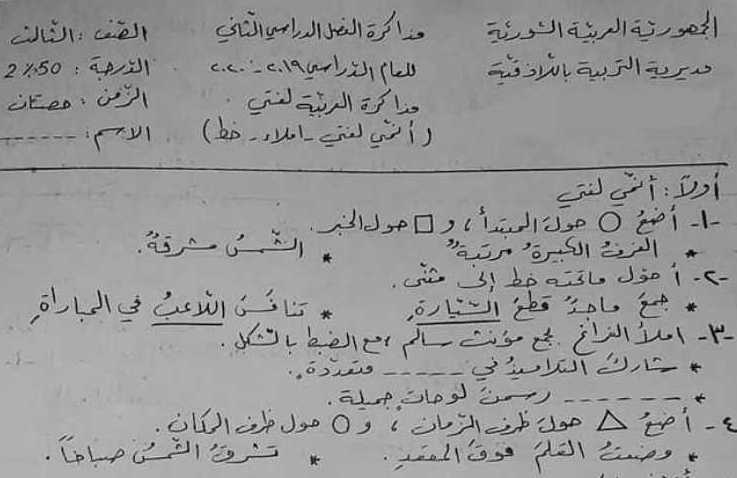 الجمهورية العربية السورية    مذاكرة الفصل الدراسي الثاني    الصف : الثالث
مديرية التربية باللاذقية    للعام الدراسي ٢٠١٩-٢٠٢٠    الدرجة : 50٪ 2
مذاكرة العربية لغتي    الزمن : حصتان
( أنمّي لغتي - املاء - خط )    الاسم : ------
أولاً : أنمّي لغتي
-١- أضعُ ○ حولَ المبتدأ ، و □ حول الخبر .
* الغرفةُ الكبيرةُ مرتبةٌ    * الشّمسُ مشرقةٌ .
-٢- أحوّل ماتحته خط إلى مثنّى .
* جمعَ ماجدُ قطعَ السّيّارةِ    * تنافسَ اللّاعبُ في المباراةِ
-٣- املأ الفراغ بجمع مؤنث سالم ، مع الضبط بالشكل .
* شاركَ التلاميذُ في ----- متعدّدةٍ .
* ------ رسمنَ لوحاتٍ جميلة .
٤- أضعُ △ حولَ ظرف الزّمان ، و ○ حول ظرف المكان .
* وضعتُ القلمَ فوقَ المقعدِ .    * تشرقُ الشّمسُ صباحاً .